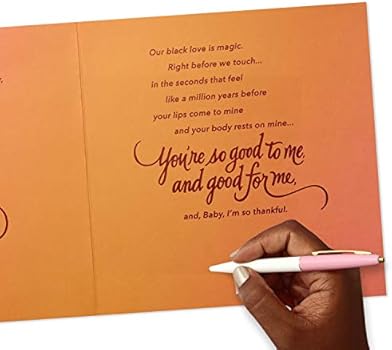 Our black love is magic.
Right before we touch...
in the seconds that feel
like a million years before
your lips come to mine
and your body rests on mine...
You're so good to me,
and good for me,
and, Baby, I'm so thankful.